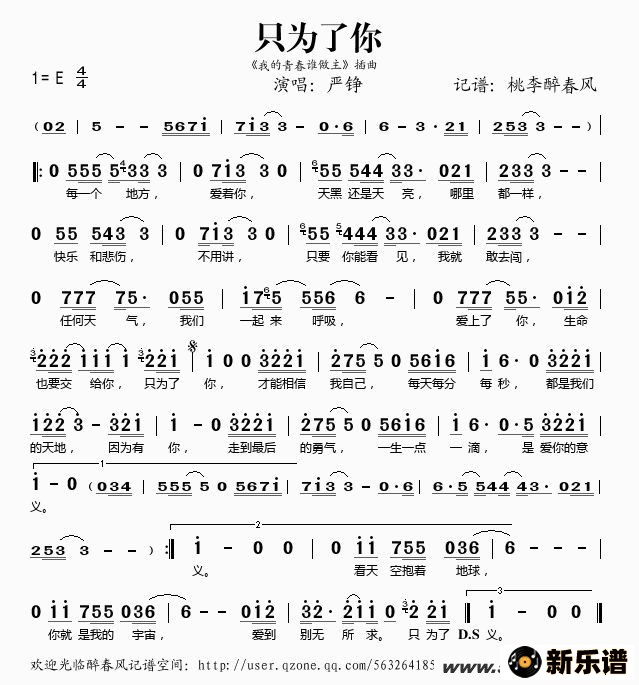 只为了你
《我的青春谁做主》插曲
1= E 4/4 演唱：严铮 记谱：桃李醉春风
( 02 | 5 - - 5671 | 713 3 - 0·6 | 6 - 3·21 | 253 3 - - |
‖: 0 555 5433 3 | 0 713 3 0 | 655 544 33· 021 | 233 3 - - |
每一个 地方， 爱着你， 天黑 还是天 亮， 哪里 都一样，
0 55 543 3 | 0 713 3 0 | 655 5444 33· 021 | 233 3 - - |
快乐 和悲伤， 不用讲， 只要 你能看 见， 我就 敢去闯，
0 777 75· 055 | 1765 556 6 - | 0 777 55· 012 |
任何天 气， 我们 一起 来 呼吸， 爱上了 你， 生命
3222 111 1 3221 | 1 0 0 3221 | 275 5 0 5616 | 1 6· 0 3221 |
也要交 给你， 只为了 你， 才能相信 我自己， 每天每分 每 秒， 都是我们
122 3 - 321 | 1 - 0 3221 | 275 5 0 5616 | 1 6· 0·5 3221 |
的天地， 因为有 你， 走到最后 的勇气， 一生一点 一 滴， 是 爱你的意
1
1 - 0 (034 | 555 5 0 5671 | 713 3 - 0·6 | 6·5 554 443 43· 021 |
义。
2
253 3 - - ) :‖ 1 - 0 0 | 0 11 755 036 | 6 - - - |
义。 看天 空抱着 地球，
3
0 11 755 036 | 6 - - 012 | 32· 211 0 3221 | 1 - 0 0 ‖
你就 是我的 宇宙， 爱到 别无 所 求。 只 为了 D.S 义。
欢迎光临醉春风记谱空间：http://user.qzone.qq.com/563264185
新乐谱